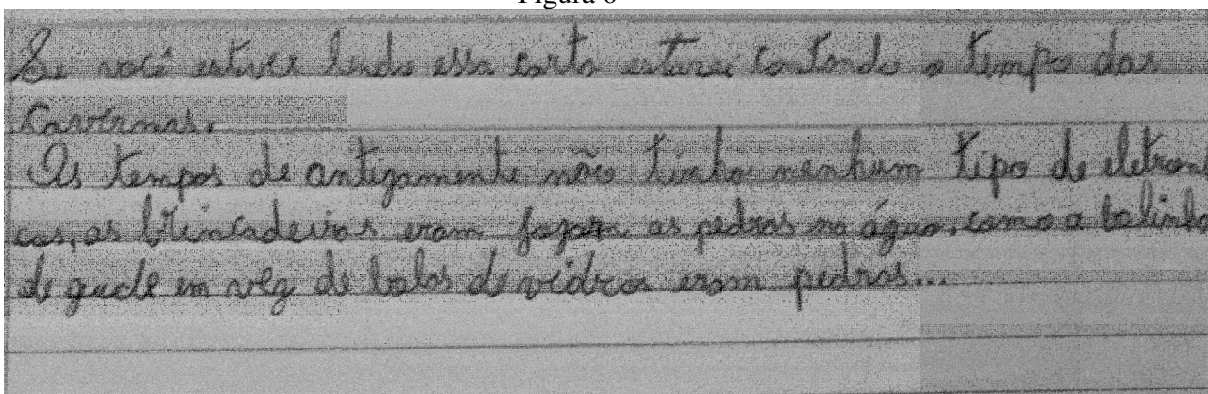 Figura 6
Se você estiver lendo essa carta estarei contando o tempo das
Cavernas.
Os tempos de antigamente não tinha nenhum tipo de eletroni
cos, as brincadeiras eram as pedras na água, como a bolinha
de gude em vez de bolas de vidros eram pedras...